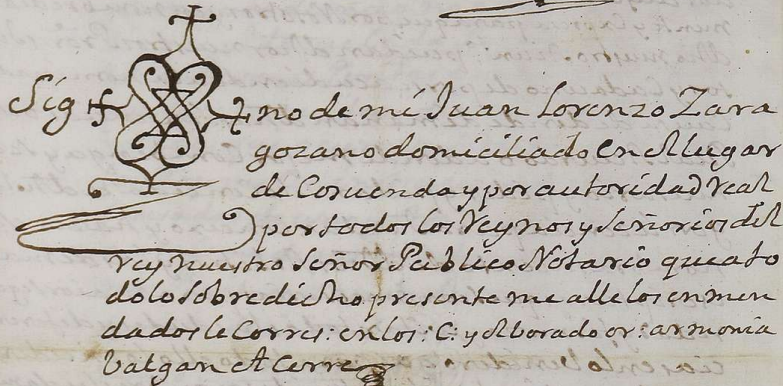 Sig no de mi Juan Lorenzo Zara
gozano domiciliado en el lugar
de Cosuenda y por autoridad real
por todos los reynos y señorios del
rey nuestro señor Publico Notario que a to
do lo sobredicho presente me alle los enmen
dados le Corres: en los: C: y el borado or: armonia
valgan et Cerre